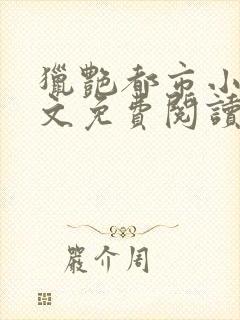 獵艷都市小
文免費閱讀
嚴介周